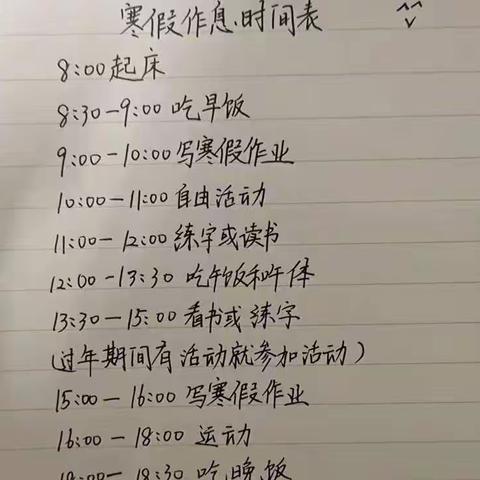 寒假作息时间表
8:00起床
8:30-9:00 吃早饭
9:00-10:00写寒假作业
10:00-11:00自由活动
11:00-12:00练字或读书
12:00-13:30 吃午饭和午休
13:30-15:00看书或练字
(过年期间有活动就参加活动)
15:00-16:00写寒假作业
16:00-18:00 运动
18:00-18:30 吃晚饭